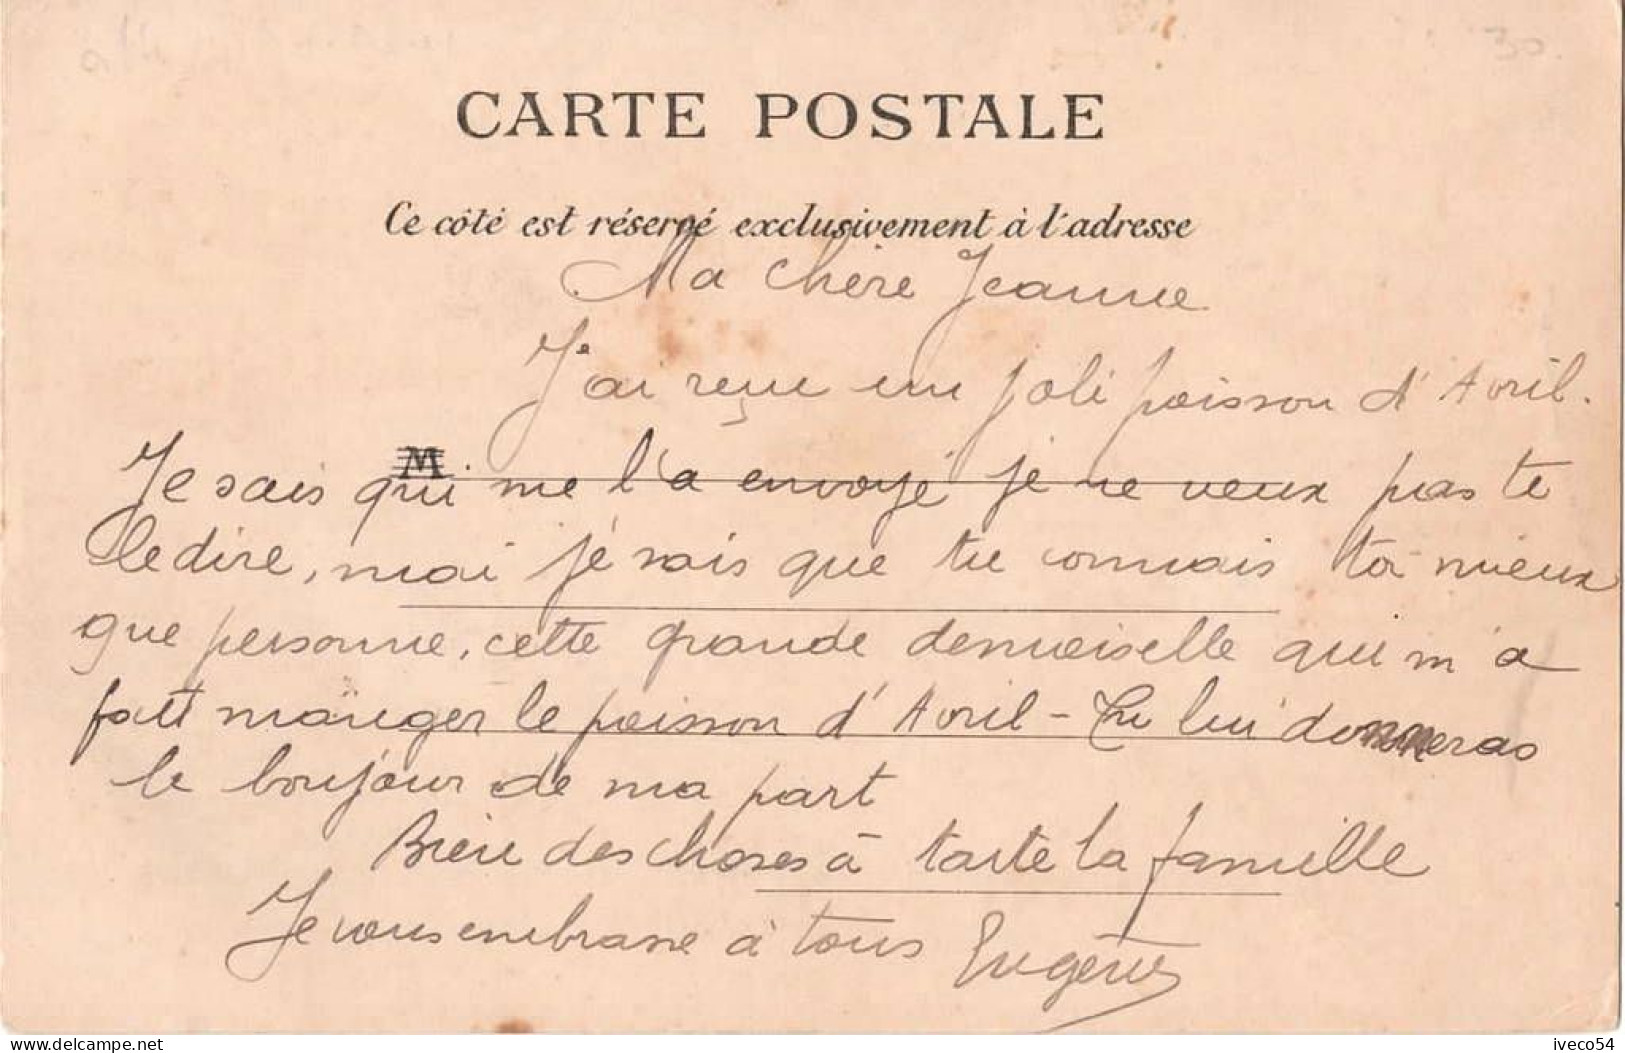 CARTE POSTALE
Ce côté est réservé exclusivement à l'adresse
Ma chère Jeanne
J'ai reçu un joli poisson d'Avril.
M
Je sais qui me l'a envoyé je ne veux pas te
le dire, mai je sais que tu connais toi mieux
que personne, cette grande demoiselle qui m'a
fait manger le poisson d'Avril - Tu lui donneras
le bonjour de ma part
Bien des choses à toute la famille
Je vous embrasse à tous Eugène
delcampe.net
iveco54